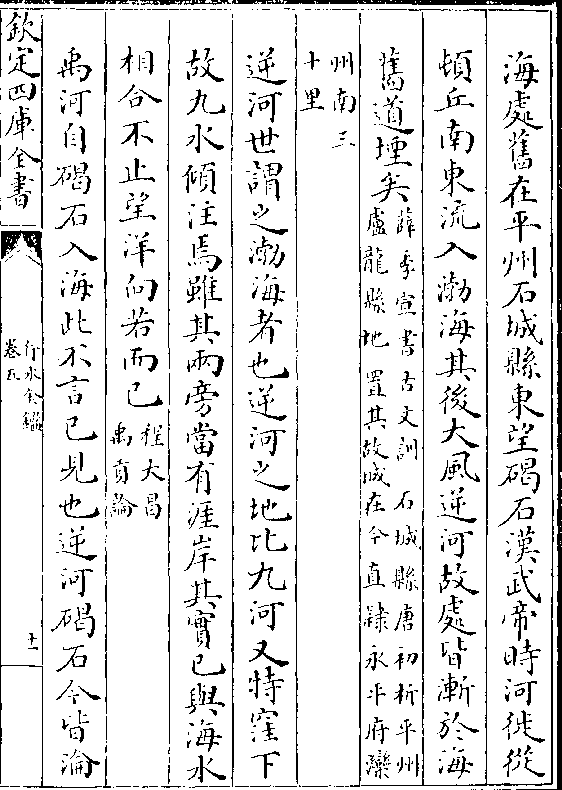 海處舊在平州石城縣東望碣石漢武帝時河徙從
頓丘南東流入渤海其後大風逆河故處皆漸於海
舊道堙矣薛季宣書古文訓 石城縣唐初析平州
盧龍縣地置其故城在今直隸永平府灤
州南三
十里
逆河世謂之渤海者也逆河之地比九河又特窪下
故九水傾注焉雖其兩旁當有涯岸其實已與海水
相合不止望洋向若而已程大昌
禹貢論
禹河自碣石入海此不言已見也逆河碣石今皆淪
欽定四庫全書
行水金鑑
卷五
十一